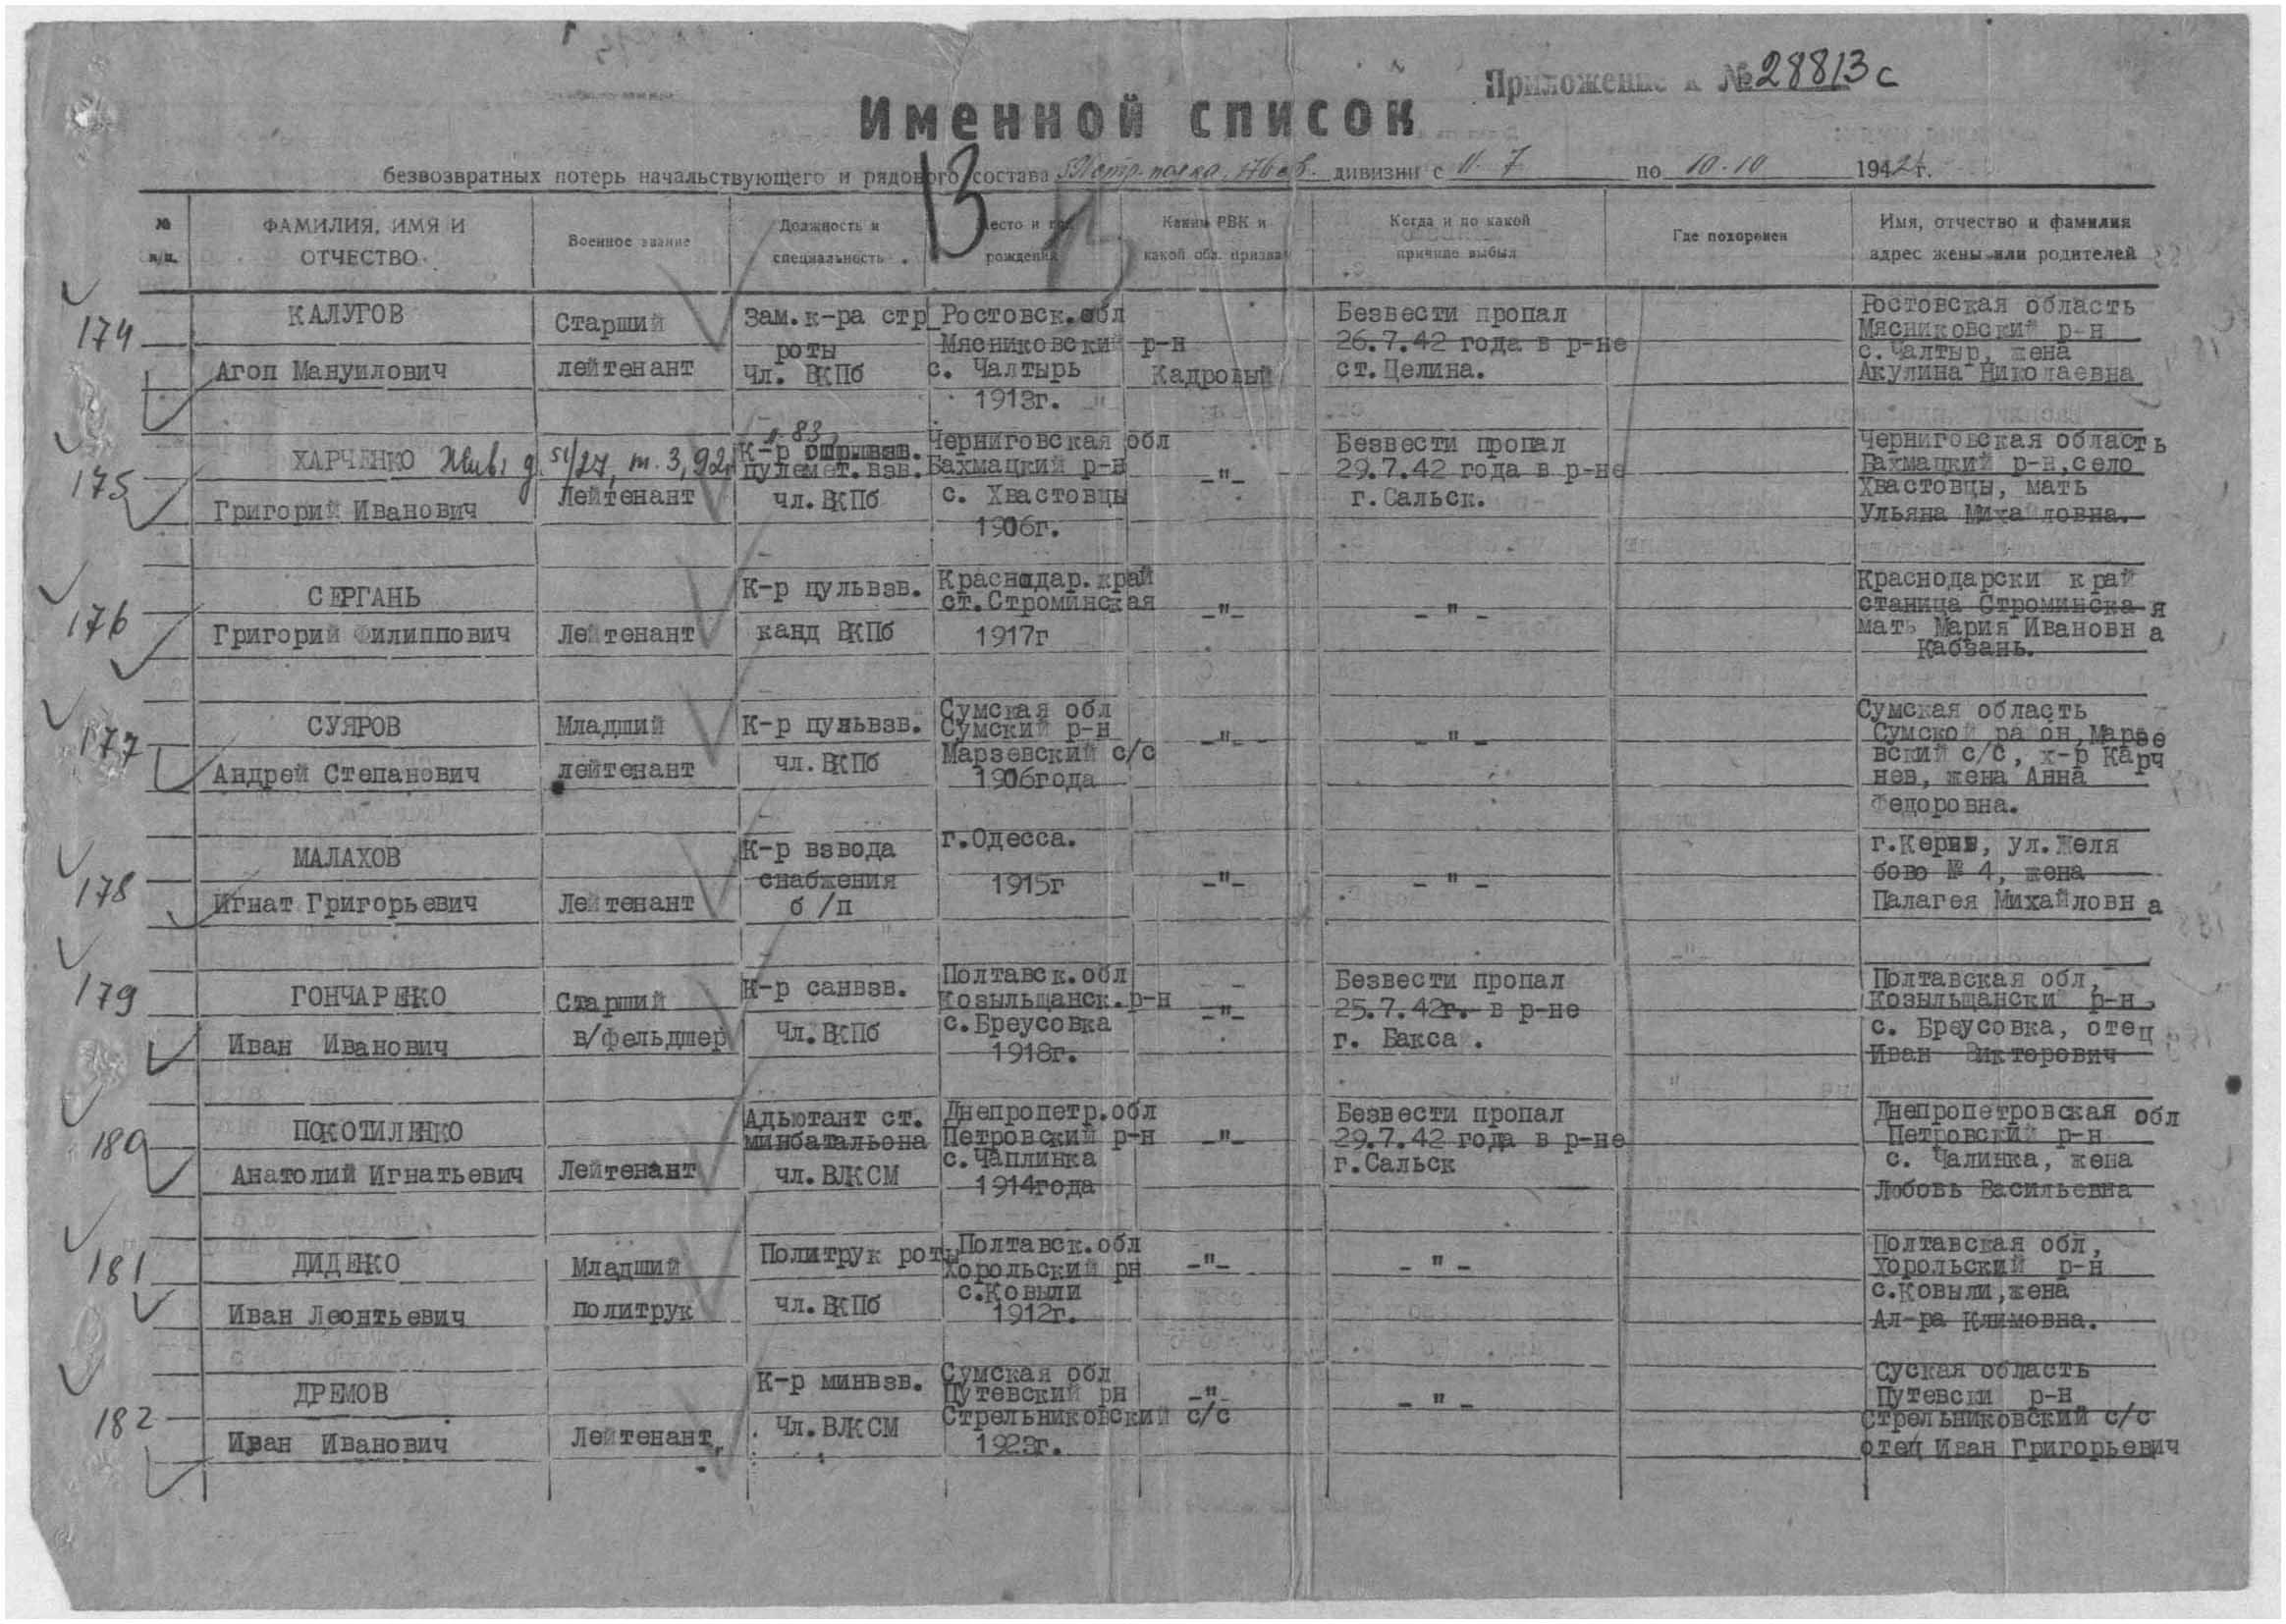 Приложение к № 28813с
Именной список
безвозвратных потерь начальствующего и рядового состава стр. полка, 176 с.д. дивизии с 11.7 по 10.10 1942 г.
13
№ п/п.
ФАМИЛИЯ, ИМЯ И ОТЧЕСТВО
Военное звание
Должность и специальность
Место и год рождения
Каким РВК и какой обл. призван
Когда и по какой причине выбыл
Где похоронен
Имя, отчество и фамилия адрес жены или родителей
174
КАЛУГОВ
Агоп Мануилович
Старший
лейтенант
Зам.к-ра стр
роты
Чл. ВКПб
Ростовск.обл
Мясниковский р-н
с. Чалтырь
1913г.
Кадровый
Безвести пропал
26.7.42 года в р-не
ст.Целина.
Ростовская область
Мясниковский р-н
с.Чалтыр, жена
Акулина Николаевна
175
ХАРЧЕНКО Жив: д. 51/27, т. 3, 92г
л 83
Григорий Иванович
Лейтенант
К-р
пулемет.взв.
чл.ВКПб
Черниговская обл
Бахмацкий р-н
с. Хвастовцы
1906г.
-"-
Безвести пропал
29.7.42 года в р-не
г.Сальск.
Черниговская область
Бахмацкий р-н,село
Хвастовцы, мать
Ульяна Михайловна.
176
СЕРГАНЬ
Григорий Филиппович
Лейтенант
К-р пульвзв.
канд ВКПб
Краснодар.край
ст.Строминская
1917г
-"-
-"-
Краснодарский край
станица Строминская
мать Мария Ивановна
Кабзань.
177
СУЯРОВ
Андрей Степанович
Младший
лейтенант
К-р пульвзв.
чл.ВКПб
Сумская обл
Сумский р-н
Марзевский с/с
1906года
-"-
-"-
Сумская область
Сумской район,Марзе
вский с/с, х-р Карч
нев, жена Анна
Федоровна.
178
МАЛАХОВ
Игнат Григорьевич
Лейтенант
К-р взвода
снабжения
б/п
г.Одесса.
1915г
-"-
-"-
г.Керчь, ул.Желя
бово № 4, жена
Палагея Михайловна
179
ГОНЧАРЕНКО
Иван Иванович
Старший
в/фельдшер
К-р санвзв.
Чл.ВКПб
Полтавск.обл
Козыльщанск.р-н
с.Бреусовка
1918г.
-"-
Безвести пропал
25.7.42г. в р-не
г. Бакса.
Полтавская обл,
Козыльщанский р-н,
с. Бреусовка, отец
Иван Викторович
180
ПОКОТИЛЕНКО
Анатолий Игнатьевич
Лейтенант
Адьютант ст.
минбатальона
чл.ВЛКСМ
Днепропетр.обл
Петровский р-н
с.Чаплинка
1914года
-"-
Безвести пропал
29.7.42 года в р-не
г.Сальск
Днепропетровская обл
Петровский р-н
с. Чалинка, жена
Любовь Васильевна
181
ДИДЕНКО
Иван Леонтьевич
Младший
политрук
Политрук роты
чл.ВКПб
Полтавск.обл
Хорольский рн
с.Ковыли
1912г.
-"-
-"-
Полтавская обл,
Хорольский р-н
с.Ковыли,жена
Ал-ра Климовна.
182
ДРЕМОВ
Иван Иванович
Лейтенант
К-р минвзв.
Чл.ВЛКСМ
Сумская обл
Путевский рн
Стрельниковский с/с
1923г.
-"-
-"-
Суская область
Путевски р-н
Стрельниковский с/с
отец Иван Григорьевич